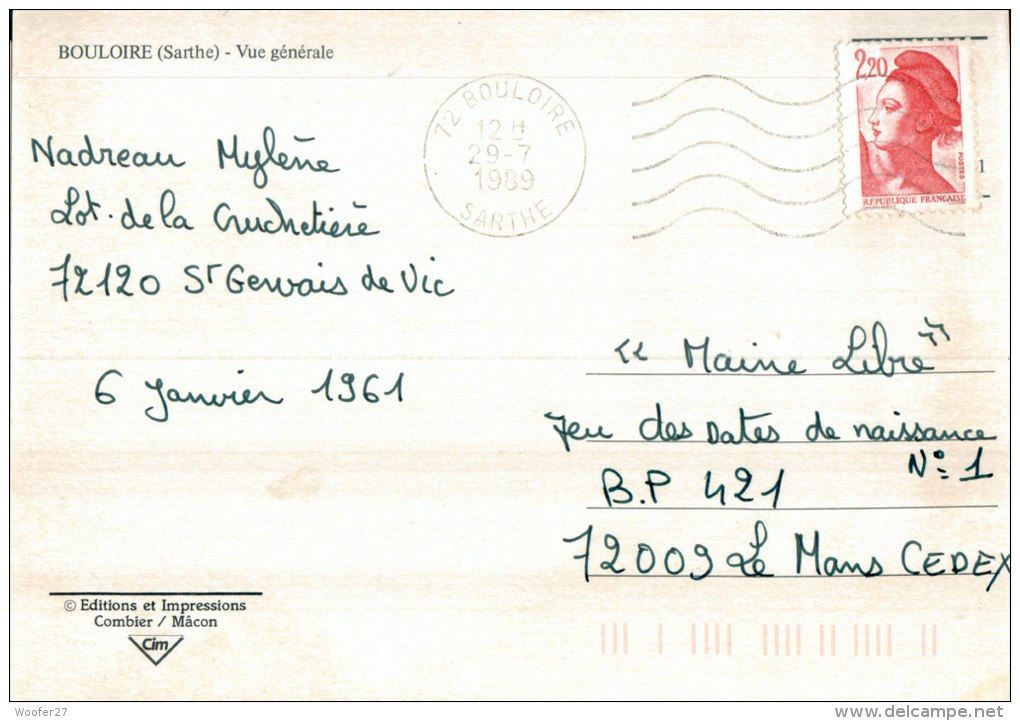 BOULOIRE (Sarthe) - Vue générale
72 BOULOIRE
12 H
29-7
1989
SARTHE
2,20
POSTES
REPUBLIQUE FRANÇAISE
Nadreau Mylène
Lot. de la Cruchetière
72120 St Gervais de Vic
6 Janvier 1961
« Maine Libre »
Jeu des Dates de naissance
N° 1
B.P 421
72009 Le Mans CEDEX
© Editions et Impressions
Combier / Mâcon
Cim
Woofer27
www.delcampe.net